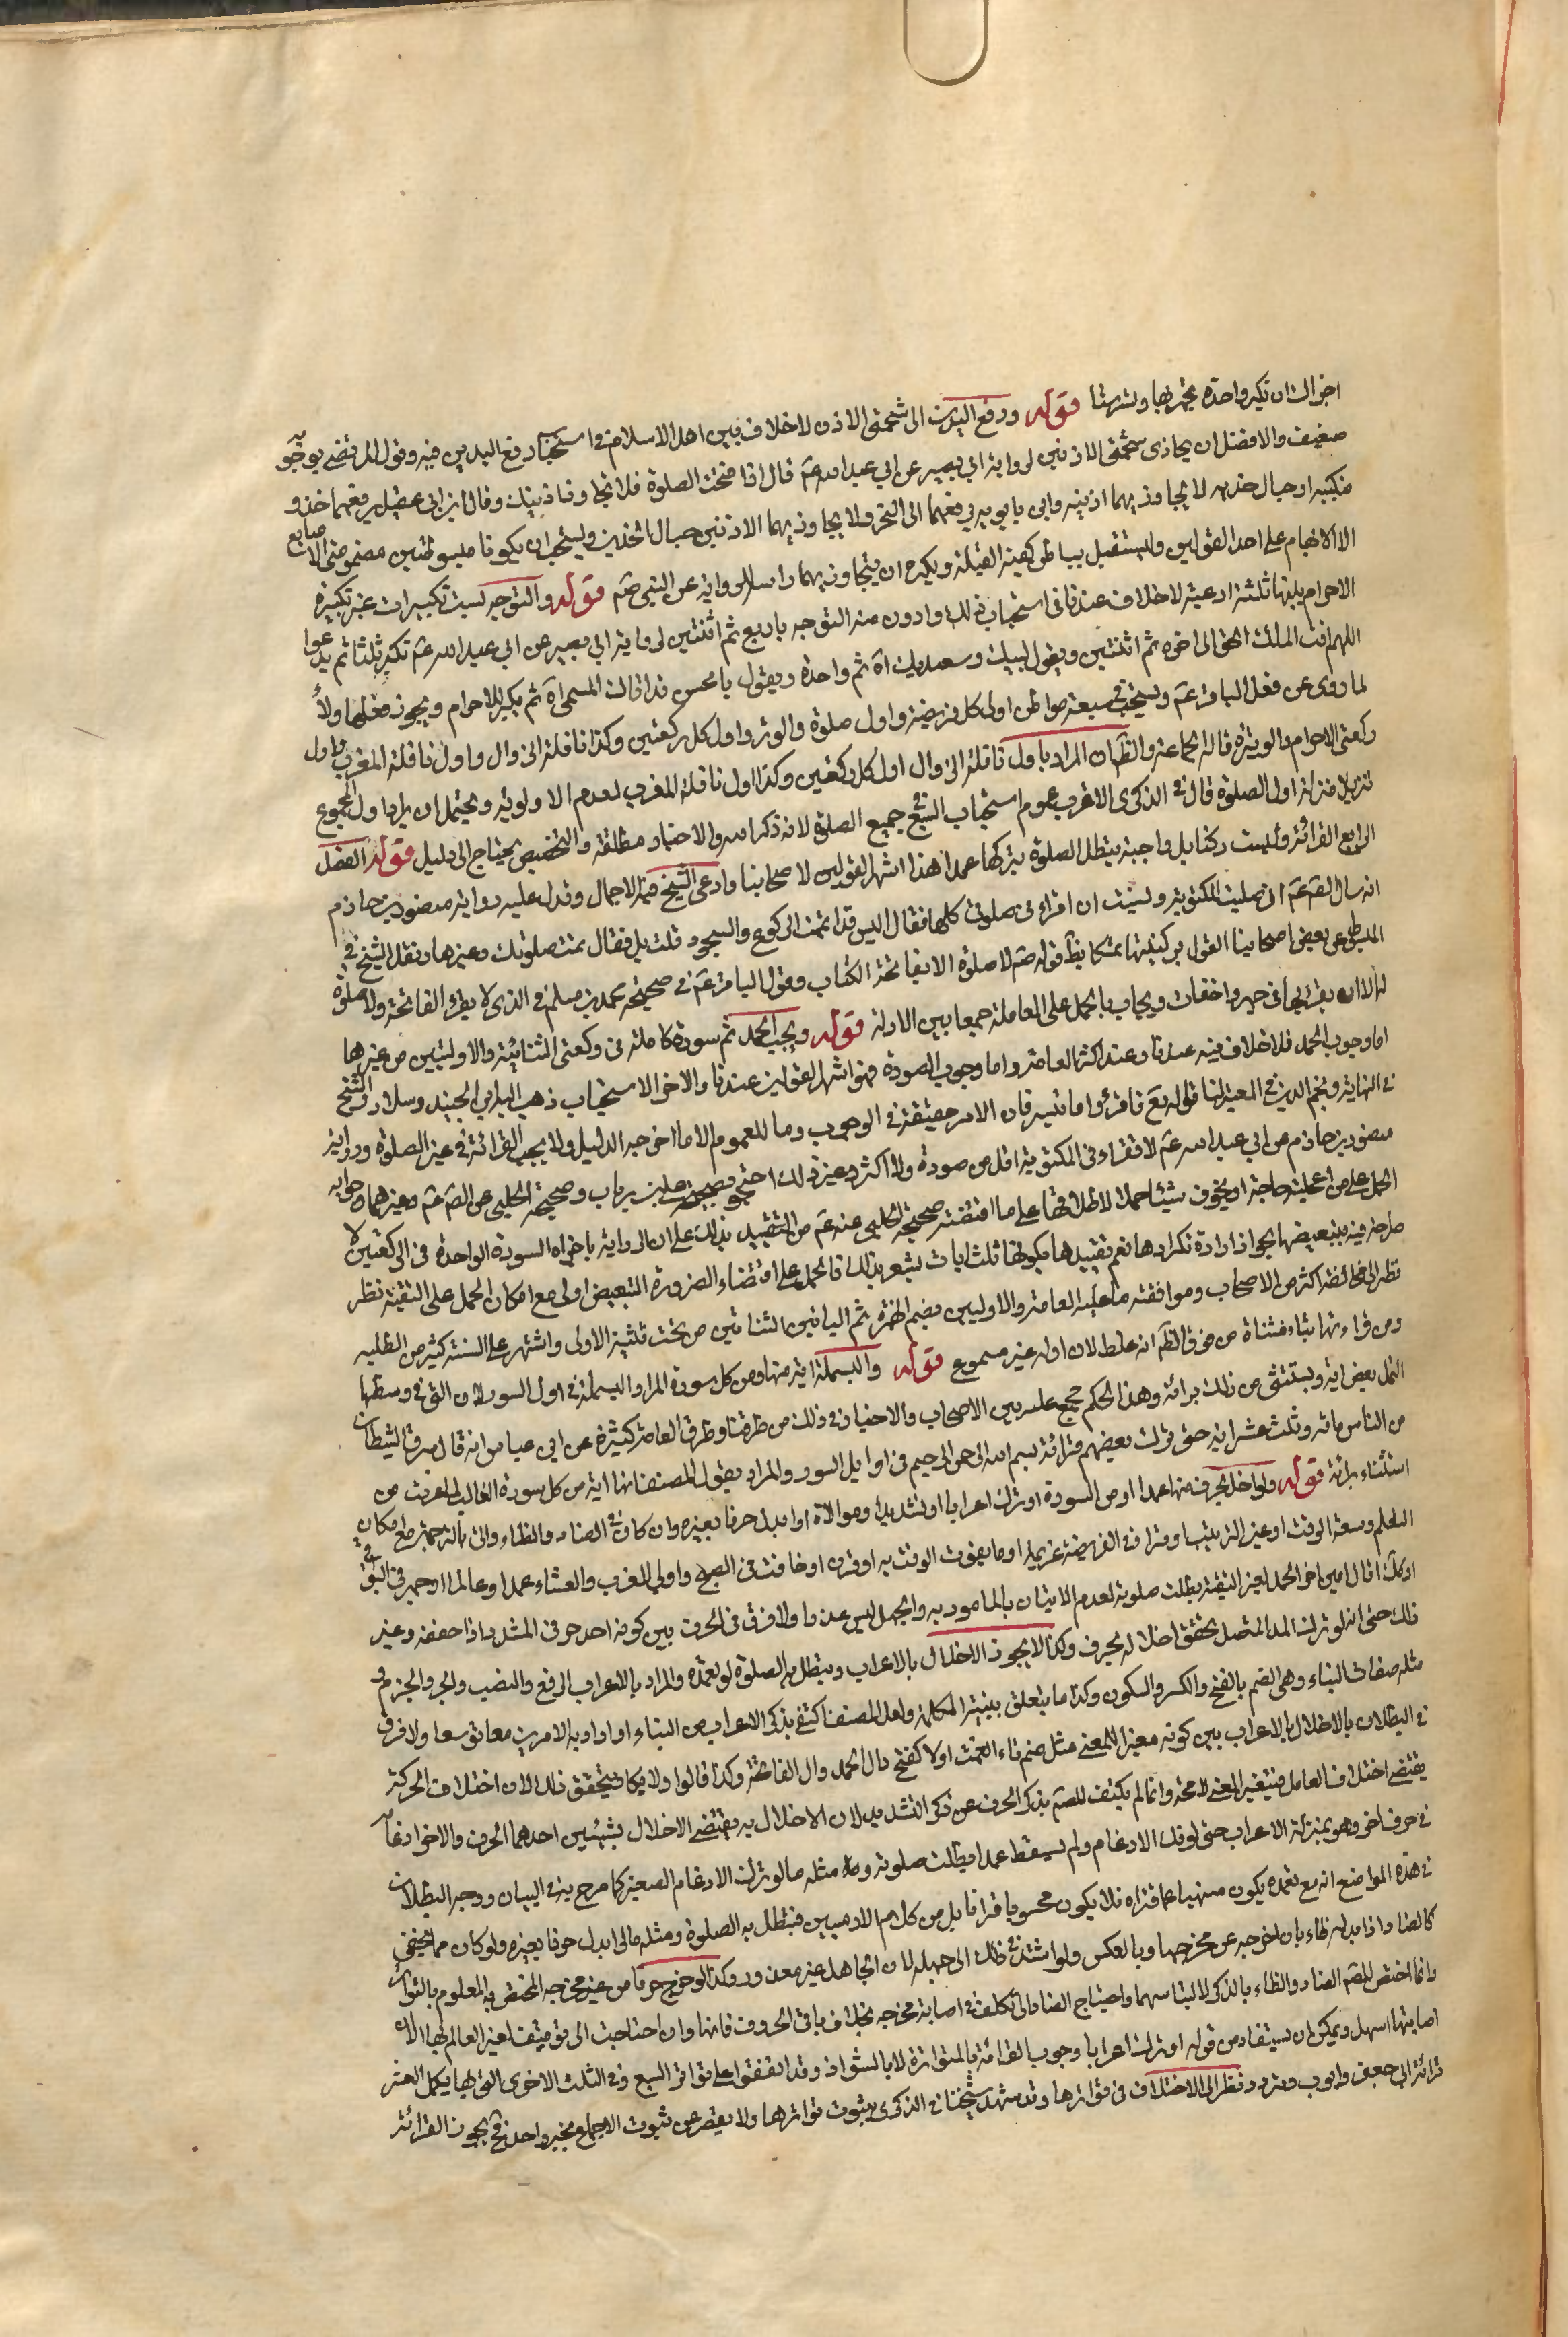 اخراك ان تكبر واحدة تجهر بها وتسر ستا قوله ورفع اليدين الى شحمتى الاذن لا خلاف بين اهل الاسلام فى استحباب رفع اليدين فيه وقول المرتضى بوجوبه
ضعيف والافضل ان يحاذى شحمتى الاذنين لرواية ابى بصير عن ابى عبد الله عم قال اذا افتتحت الصلوة فلا تجاوز اذنيك وقال ابن ابى عقيل يرفعهما حذو
منكبيه او حيال خديه لا يجاوز بهما اذنيه وابن بابويه يرفعهما الى النحر ولا يجاوز بهما الاذنين حيال الخدين ويستحب ان يكونا مبسوطتين مضمومتى الاصابع
الا الابهام على احد القولين وليستقبل بباطن كفيه القبلة ويكره ان يتجاوز بهما راسه لرواية عن النبى صم قوله والتوجه بست تكبيرات غير تكبيرة
الاحرام بينها ثلثة ادعية لا خلاف عندنا فى استحباب ذلك وادون منه التوجه باربع ثم اثنتين لرواية ابى بصير عن ابى عبد الله عم تكبر ثلثا ثم يدعوا
اللهم انت الملك الحق الى اخره ثم اثنتين ويقول لبيك وسعديك اه ثم واحدة ويقول يا محسن قد اتاك المسىء اه ثم يكبر للاحرام ويجوز فعلها ولاء
لما روى عن فعل الباقر عم ويستحب فى سبعة مواطن اول كل فريضة واول صلوة والوتر واول كل ركعتين وكذا نافلة الزوال واول نافلة المغرب واول
ركعتى الاحرام والوتيرة قاله الجماعة والظ ان المراد باول نافلة الزوال اول كل ركعتين وكذا اول نافلة المغرب لعدم الاولوية ويحتمل ان يراد اول المجموع
تنزيلا منزلة اول الصلوة قال فى الذكرى الاقرب عموم استحباب السبع فى جميع الصلوة لانه ذكر الله والاخبار مطلقة والتخصيص يحتاج الى دليل قوله الفصل
الرابع القرائة وليست ركنا بل واجبة يبطل الصلوة بتركها عمدا هذا اشهر القولين لاصحابنا وادعى الشيخ فيه الاجماع وتدل عليه رواية منصور بن حازم
انه سال الصم عم انى صليت المكتوبة ونسيت ان اقراء فى صلوتى كلها فقال اليس قد اتممت الركوع والسجود قلت بلى فقال تمت صلوتك وغيرها ونقل الشيخ فى
المبسوط عن بعض اصحابنا القول بركنيتها تمسكا بظ قوله صم لا صلوة الا بفاتحة الكتاب وقول الباقر عم فى صحيحة محمد بن مسلم فى الذى لا يقرء الفاتحة ولا صلوة
له الا ان يقرء بها فى جهر واخفات ويجاب بالحمل على العامل جمعا بين الادلة قوله ويجب الحمد ثم سورة كاملة فى ركعتى الثنائية والاوليتين من غيرها
اما وجوب الحمد فلا خلاف فيه عندنا وعند اكثر العامة واما وجوب السورة فهو اشهر القولين عندنا والاخر الاستحباب ذهب اليه ابن الجنيد وسلار والشيخ
فى النهاية ونجم الدين فى المعتبر لنا قوله تع فاقرؤا ما تيسر فان الامر حقيقة فى الوجوب وما للعموم الا ما اخرجه الدليل ولا يجب القرائة فى غير الصلوة ورواية
منصور بن حازم عن ابى عبد الله عم لا تقراء فى المكتوبة اقل من سورة ولا اكثر وغير ذلك احتجوا بصحيحة على بن رياب وصحيحة الحلبى عن الصم عم وغيرهما وجوابه
الحمل على من اعجلته حاجة او يخوف شيئا حملا لاطلاقها على ما اقتضته صحيحة الحلبى عنه عم من التقييد بذلك على ان الرواية باجزاء السورة الواحدة فى الركعتين لا
صراحة فيه بتبعيضها لجواز ارادة تكرارها نعم تقييدها بكونها ثلث ايات يشعر بذلك فالحمل على اقتضاء الضرورة التبعيض اولى مع امكان الحمل على التقية نظر
نظرا الى مخالفته اكثر من الاصحاب وموافقته ما عليه العامة والاوليين بضم الهمزة ثم اليائين المثناتين من تحت تثنية الاولى واشتهر على السنة كثير من الطلبة
ومن قراءتها بتاء مثناة من فوق الظ انه غلط لان اوله غير مسموع قوله والبسملة اية منها ومن كل سورة المراد البسملة فى اول السورة لان التى فى وسطها
النمل بعض اية ويستثنى من ذلك برائة وهذا الحكم مجمع عليه بين الاصحاب والاخبار فى ذلك من طرقنا وطرق العامة كثيرة عن ابن عباس انه قال سرق الشيطان
من الناس مائة وثلث عشر اية حتى ترك بعضهم قرائة بسم الله الرحمن الرحيم فى اوايل السور والمراد بقول المصنف انها اية من كل سورة الغالب لما عرفت من
استثناء برائة قوله ولو اخل بحرف منها عمدا او من السورة او ترك اعرابا او تشديدا وموالاة او ابدل حرفا بغيره وان كان فى الضاد والظاء واتى بالترجمة مع امكان
التعلم وسعة الوقت او غير الترتيب او قرا فى الفريضة عزيمة او ما يفوت الوقت به او قرن او خافت فى الصبح واولى المغرب والعشاء عمدا وعالما او جهر فى البواقى
او كان قال امين اخر الحمد لغير التقية بطلت صلوته لعدم الاتيان بالمامور به والجهل ليس عذرا ولا فرق فى الحرف بين كونه احد حرفى المشدد اذا خففه وغير
ذلك حتى انه لو ترك المد المتصل تحقق اخلاله بحرف وكذا لا يجوز الاخلال بالاعراب وتبطل به الصلوة لو تعمده والمراد بالاعراب الرفع والنصب والجر والجزم و
مثله صفات البناء وهى الضم بالفتح والكسر والسكون وكذا ما يتعلق ببنية الكلمة ولعل المصنف اكتفى بذكر الاعراب من البناء او اراد به الامرين معا توسعا ولا فرق
فى البطلان بالاخلال بالاعراب بين كونه مغيرا للمعنى مثل ضم تاء انعمت اولا كفتح دال الحمد وال الفاتحة وكذا قالوا ولا يكاد يتحقق ذلك لان اختلاف الحركة
يقتضى اختلاف العامل فيتغير المعنى لا محة وانما لم يكتف المصم بذكر الحرف عن ذكر التشديد لان الاخلال به يقتضى الاخلال بشيئين احدهما الحرف والاخر ادغامه
فى حرف اخر وهو بمنزلة الاعراب حتى لو فك الادغام ولم يسقط عمدا بطلت صلوته ومثله ما لو ترك الادغام الصغير كما صرح به فى البيان ووجه البطلان
فى هذه المواضع انه مع تعمده يكون منهيا عما قراه فلا يكون محسوبا قرانا بل من كلام الادميين فتبطل به الصلوة ومثله ما لو ابدل حرفا بغيره ولو كان مما يخفى
كالضاد اذا ابدله ظاء بان اخرجه عن مخرجها وبالعكس ولو استند فى ذلك الى جهله لان الجاهل غير معذور وكذا لو خرج حرفا من غير مخرجه المختص به المعلوم بالتواتر
وانما اختص المصم الضاد والظاء بالذكر لالتباسهما واحتياج الضاد الى تكلف فى اصابة مخرجه بخلاف باقى الحروف فانها وان احتاجت الى توقيف لغير العالم بها الا ان
اصابتها اسهل ويمكن ان يستفاد من قوله او ترك اعرابا وجوب القرائة بالمتواترة لا بالشواذ وقد اتفقوا على تواتر السبع وفى الثلث الاخرى التى بها يكمل العشر
قرائة ابى جعفر وايوب ويتردد نظرا الى الاختلاف فى تواترها وقد شهد شيخنا فى الذكرى بثبوت تواترها ولا يقصر عن ثبوت الاجماع بخبر واحد فتجوز القرائة